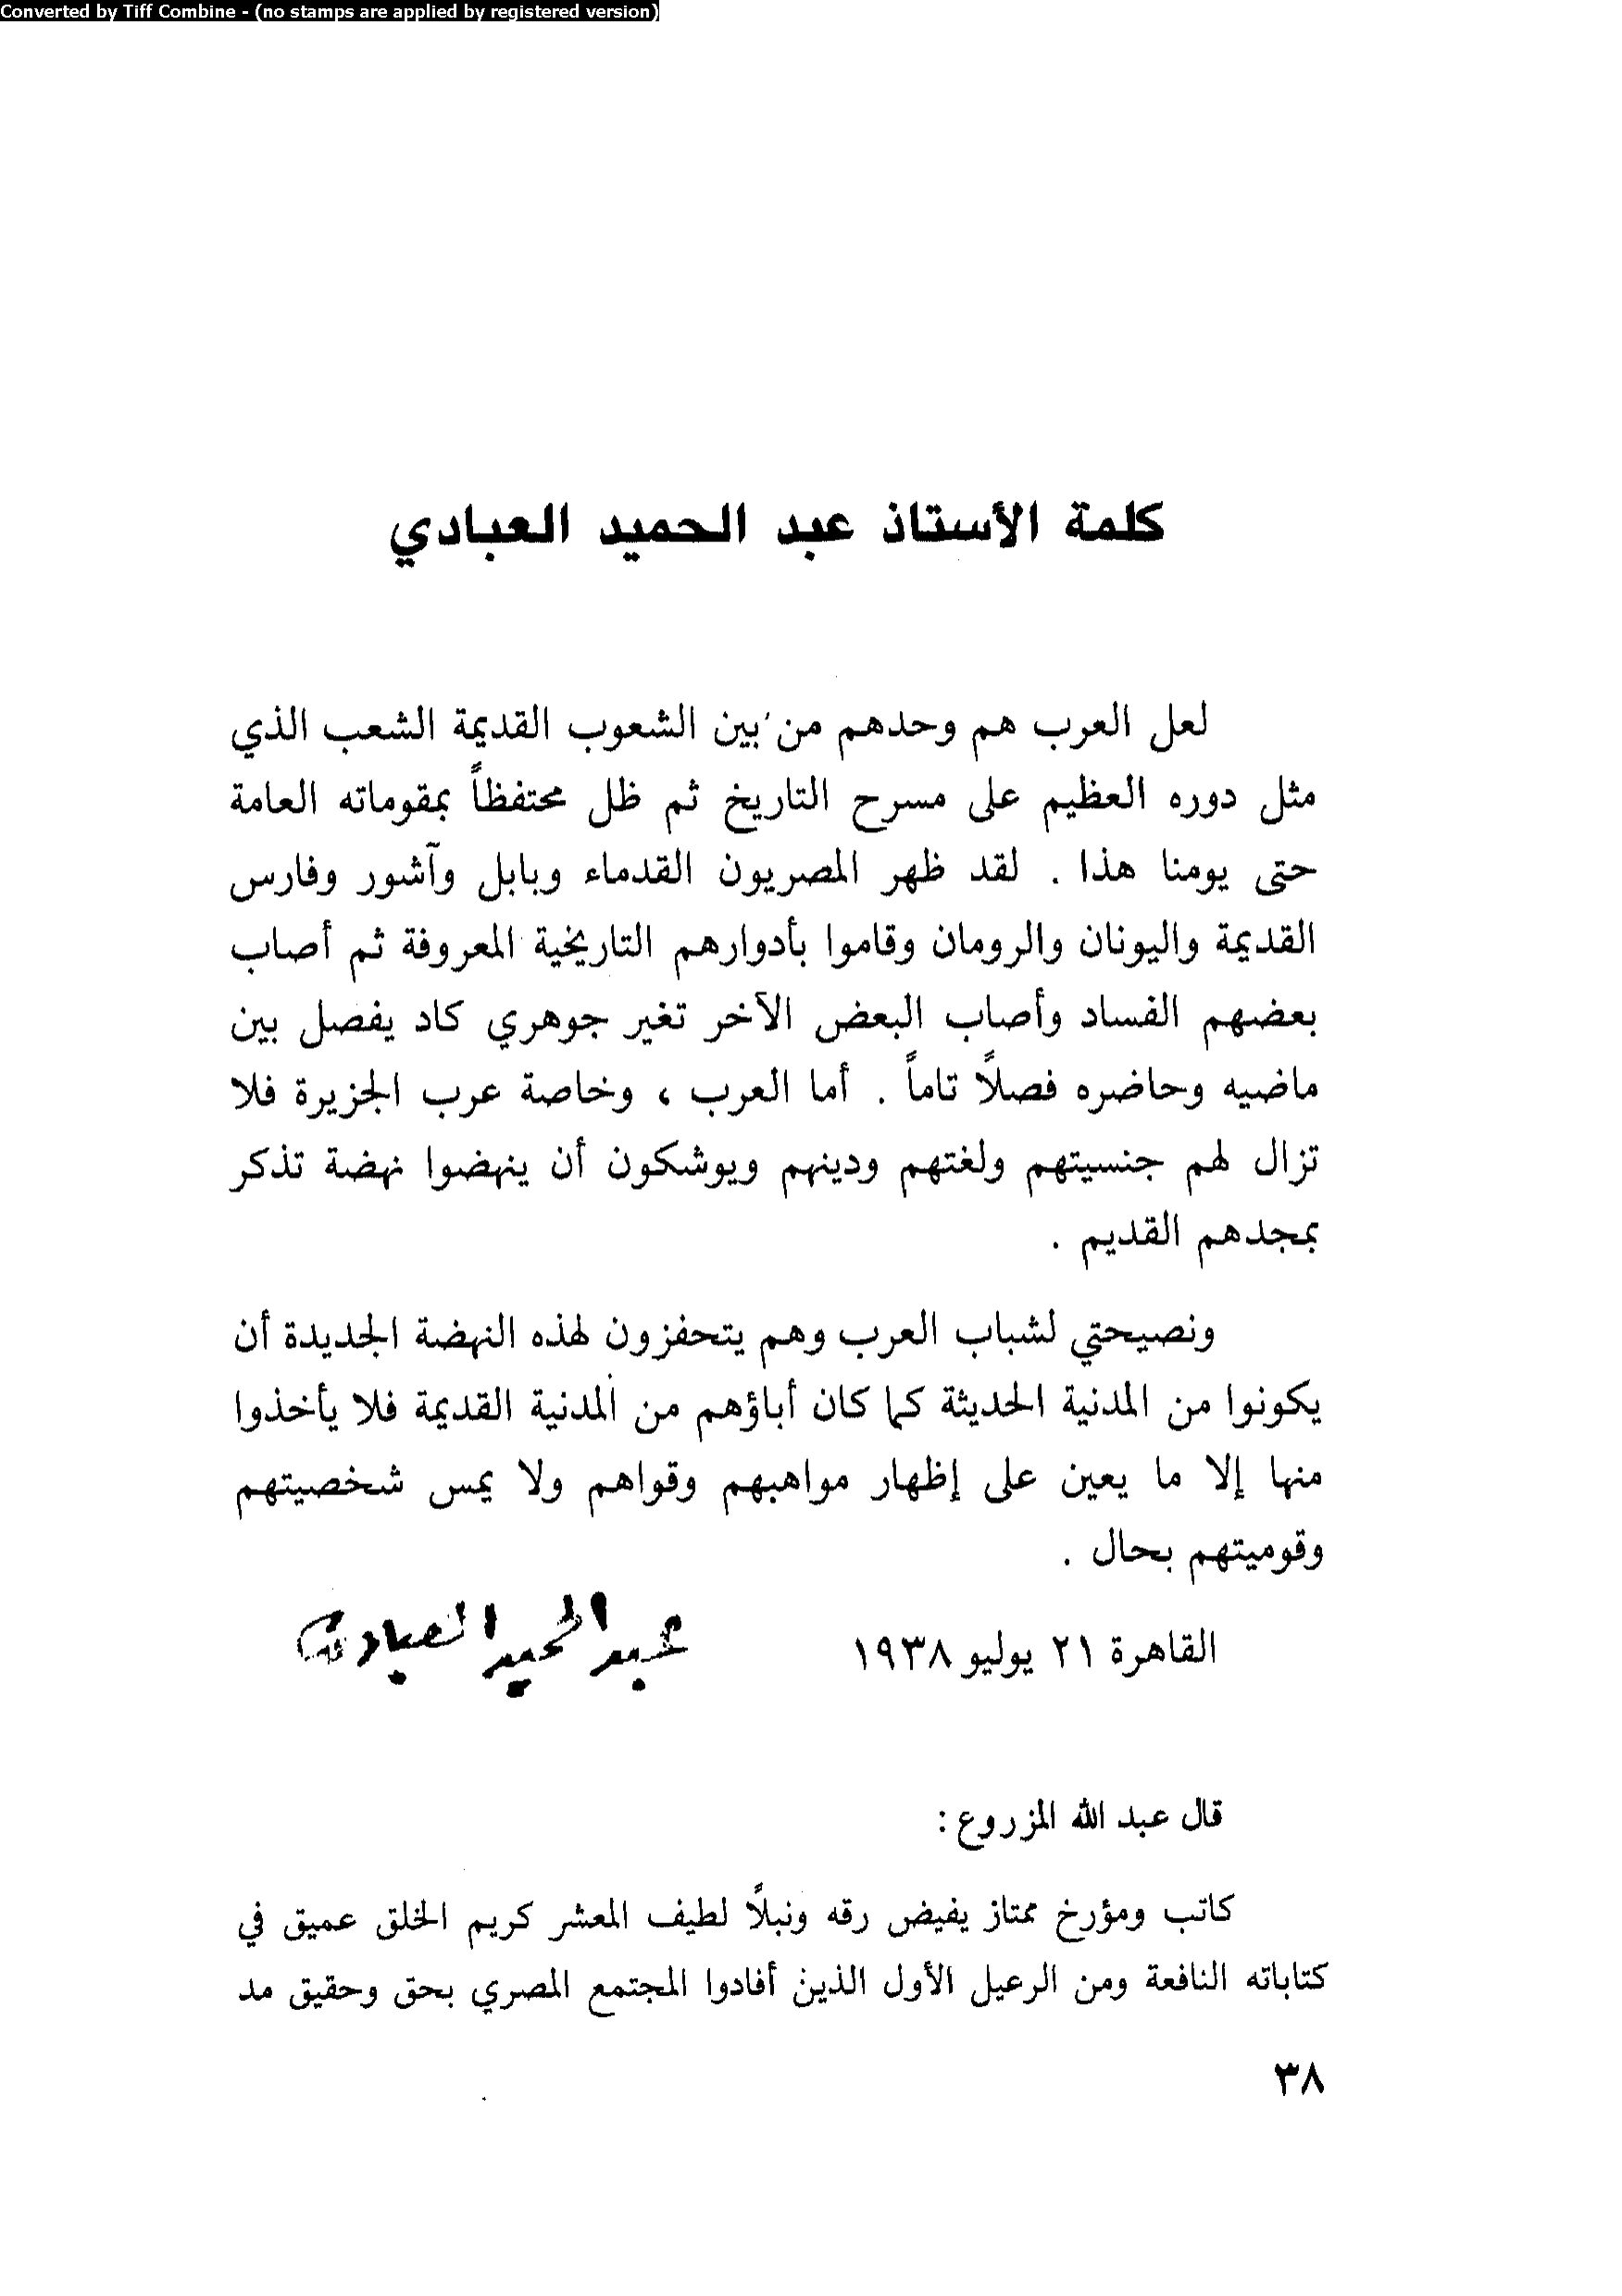 Converted by Tiff Combine - (no stamps are applied by registered version)
كلمة الأستاذ عبد الحميد العبادي
لعل العرب هم وحدهم من بين الشعوب القديمة الشعب الذي
مثل دوره العظيم على مسرح التاريخ ثم ظل محتفظاً بمقوماته العامة
حتى يومنا هذا . لقد ظهر المصريون القدماء وبابل وآشور وفارس
القديمة واليونان والرومان وقاموا بأدوارهم التاريخية المعروفة ثم أصاب
بعضهم الفساد وأصاب البعض الآخر تغير جوهري كاد يفصل بين
ماضيه وحاضره فصلاً تاماً . أما العرب ، وخاصة عرب الجزيرة فلا
تزال لهم جنسيتهم ولغتهم ودينهم ويوشكون أن ينهضوا نهضة تذكر
بمجدهم القديم .
ونصيحتي لشباب العرب وهم يتحفزون لهذه النهضة الجديدة أن
يكونوا من المدنية الحديثة كما كان أباؤهم من المدنية القديمة فلا يأخذوا
منها إلا ما يعين على إظهار مواهبهم وقواهم ولا يمس شخصيتهم
وقوميتهم بحال .
القاهرة ٢١ يوليو ١٩٣٨ عبد الحميد العبادي
قال عبد الله المزروع :
كاتب ومؤرخ ممتاز يفيض رقه ونبلاً لطيف المعشر كريم الخلق عميق في
كتاباته النافعة ومن الرعيل الأول الذين أفادوا المجتمع المصري بحق وحقيق مد
٣٨